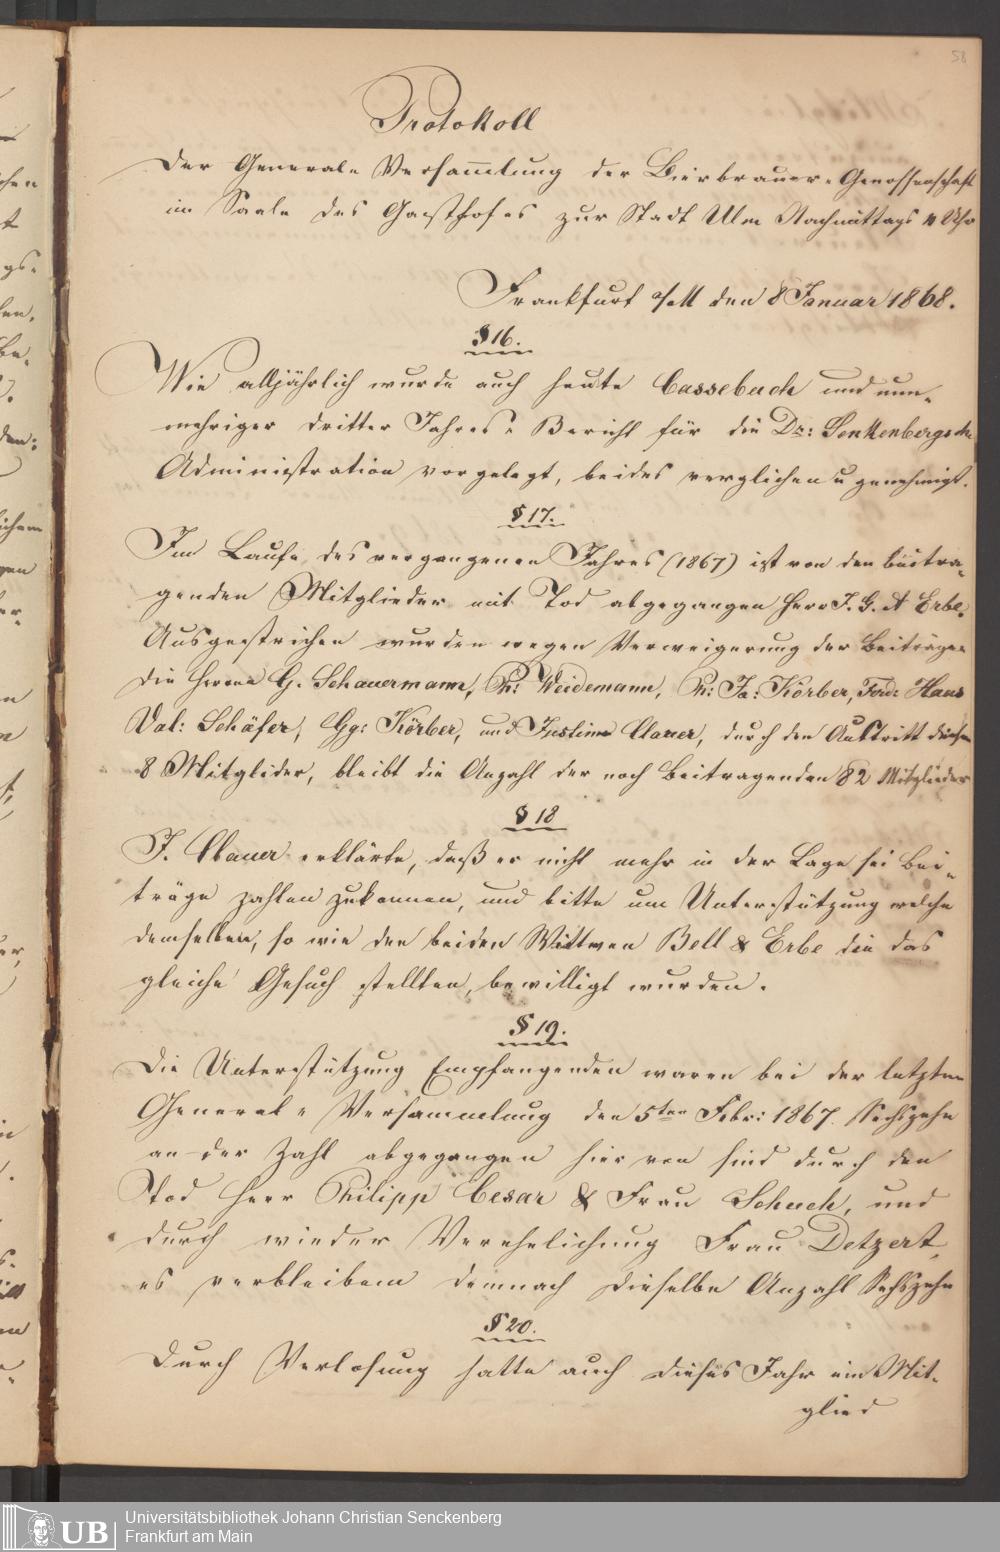 58
Protokoll
Der General-Versam̅lung der Bierbrauer-Genossenschaft
im Saale des Gasthofes zur Stadt Ulm Nachmittags 4 Uhr
Frankfurt a/M den 8 Januar 1868.
§ 16.
Wie alljährlich wurde auch heute Cassebuch und nun-
mehriger dritter Jahres-Bericht für die Dr: Senkenbergsche
Administration vorgelegt, beides verglichen u genehmigt.
§ 17.
Im Laufe des vergangenen Jahres (1867) ist von den beitra-
genden Mitglieder mit Tod abgegangen Herr J. G. A Erbe.
Ausgestrichen wurden wegen Verweigerung der Beiträgen
die Herren G. Schauermann, Ph: Weidemann, Ph: Ja: Körber, Ferd: Haus
Val: Schäfer, Gg: Körber, und Justinus Clauer, durch den Austritt dieser
8 Mitglider, bleibt die Anzahl der noch Beitragenden 82 Mitglieder
§ 18
J. Clauer erklärte, daß er nicht mehr in der Lage sei Bei-
träge zahlen zukönnen, und bitte um Unterstützung welche
demselben, so wie den beiden Wittwen Bell & Erbe die das
gleiche Gesuch stellten, bewilligt wurden.
§ 19.
Die Unterstützung Empfangenden waren bei der letzten
General-Versammlung den 5ten Febr: 1867. Sechszehn
an der Zahl abgegangen hier von sind durch den
Tod Herr Philipp Cesar & Frau Schuch, und
durch wieder Verehelichung Frau Detzert,
es verbleiben demnach dieselbe Anzahl Sechszehn
§ 20.
Durch Verlosung hatte auch dieses Jahr ein Mit-
glied
UB
Universitätsbibliothek Johann Christian Senckenberg
Frankfurt am Main